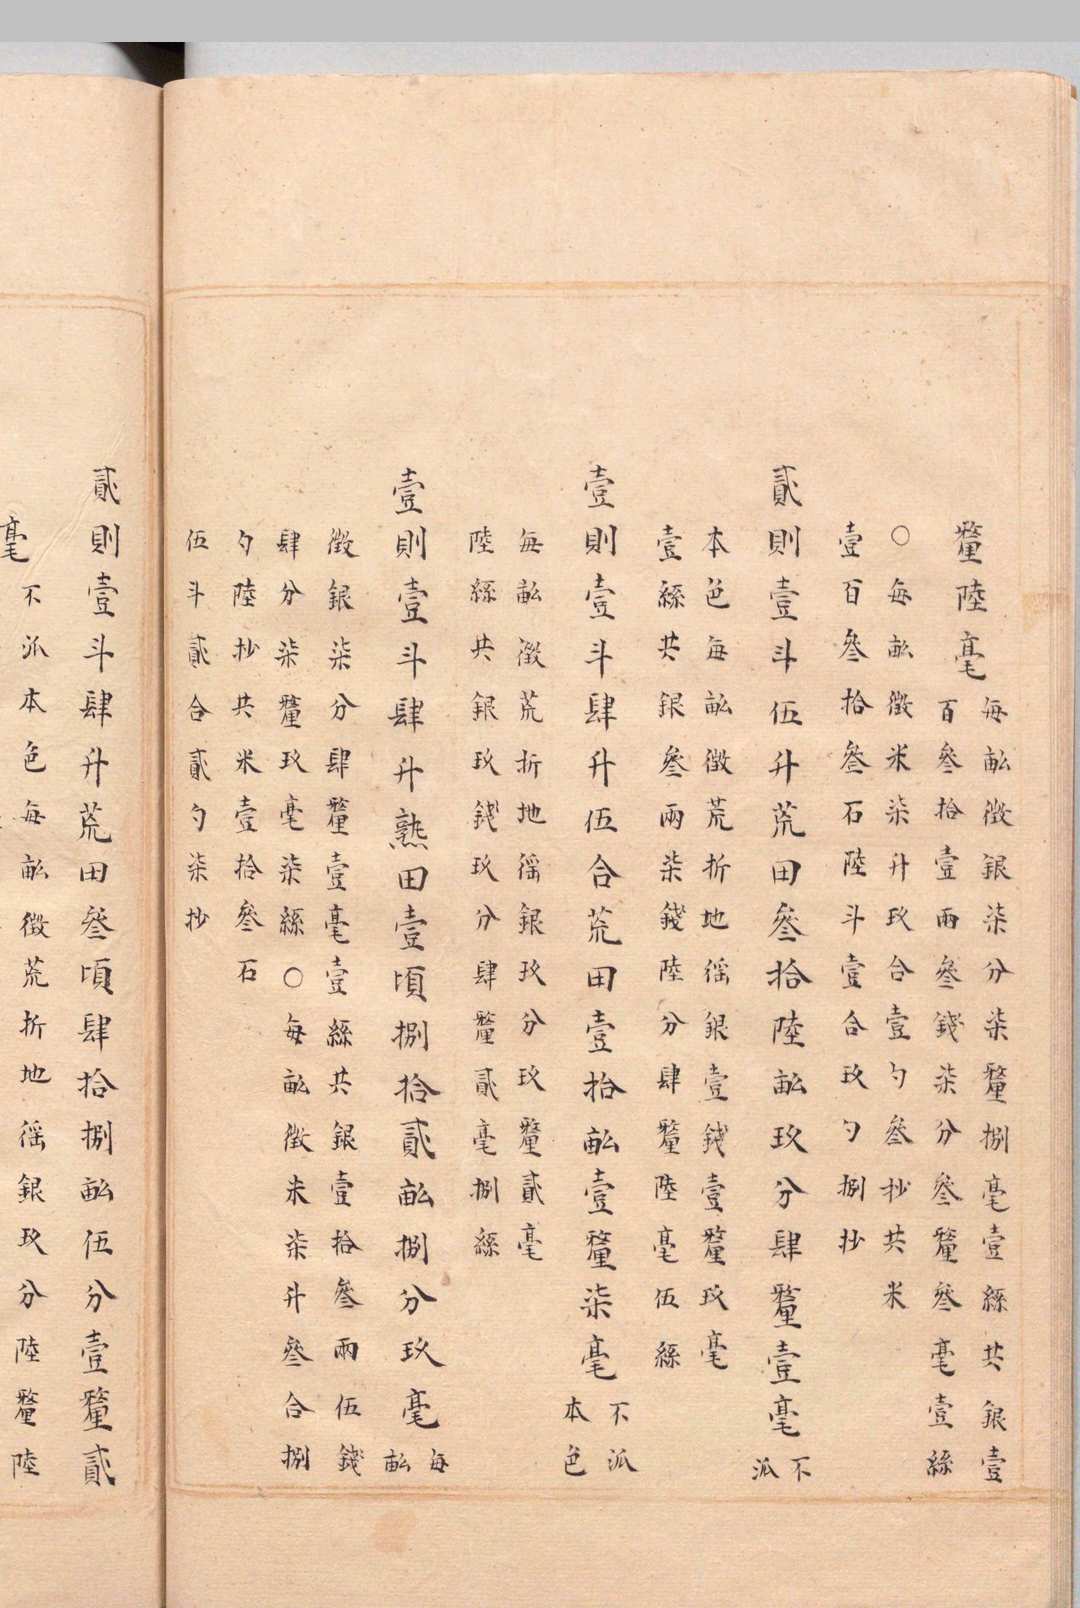 釐陸毫
每畝徵銀柒分柒釐捌毫壹絲共銀壹
百叄拾壹兩叄錢柒分叄釐叄毫壹絲
○每畝徵米柒升玖合壹勺叄抄共米
壹百叄拾叄石陸斗壹合玖勺捌抄
貳則壹斗伍升荒田叄拾陸畝玖分肆釐壹毫
不派
本色每畝徵荒折地徭銀壹錢壹釐玖毫
壹絲共銀叄兩柒錢陸分肆釐陸毫伍絲
壹則壹斗肆升伍合荒田壹拾畝壹釐柒毫
不派
本色
每畝徵荒折地徭銀玖分玖釐貳毫
陸絲共銀玖錢玖分肆釐貳毫捌絲
壹則壹斗肆升熟田壹頃捌拾貳畝捌分玖毫
每
畝
徵銀柒分肆釐壹毫壹絲共銀壹拾叄兩伍錢
肆分柒釐玖毫柒絲○每畝徵米柒升叄合捌
勺陸抄共米壹拾叄石
伍斗貳合貳勺柒抄
貳則壹斗肆升荒田叄頃肆拾捌畝伍分壹釐貳
毫
不派本色每畝徵荒折地徭銀玖分陸釐陸